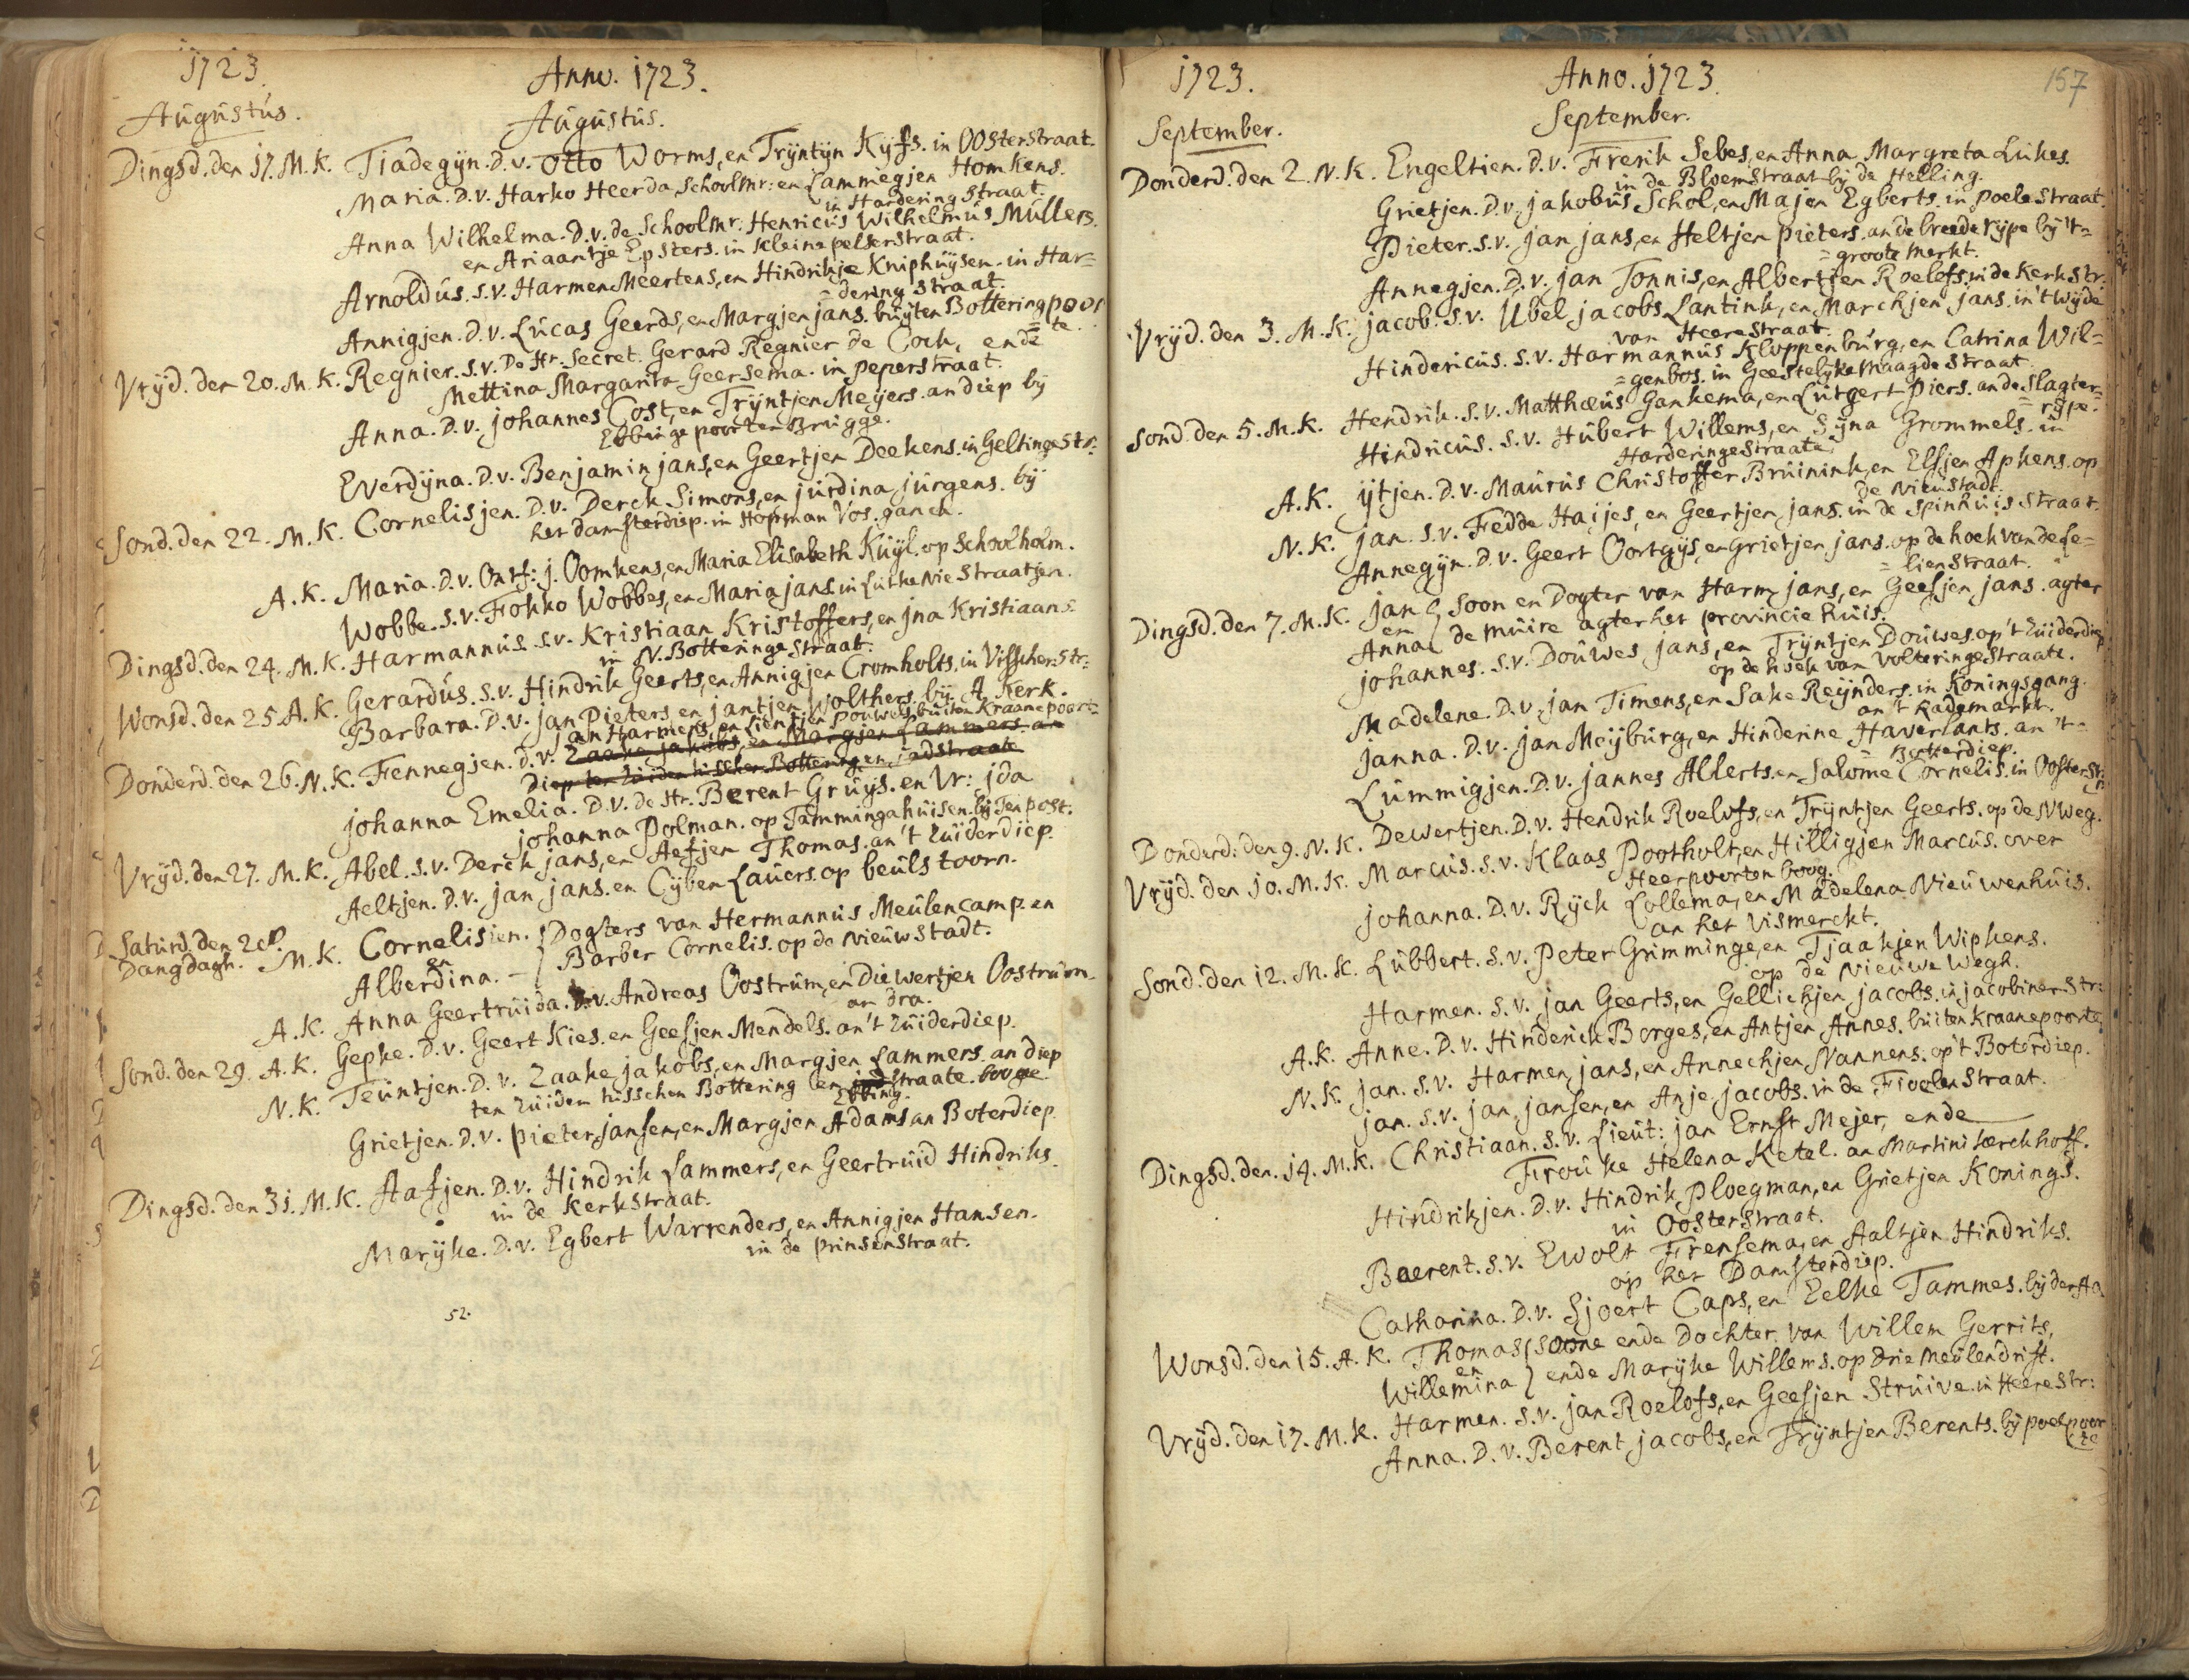 1723.
Anno. 1723.
Augustus.
Augustus.
Dingsd. den 17. M.K. Tiadegÿn. D.v. Otto Worms, en Trÿntÿn Kÿfs. in Oosterstraat.
Maria. D.v. Harko Heerda, Schoolmr: en Lammegjen Homkens.
in Hardering Straat.
Anna Wilhelma. D.v. de Schoolmr. Henricus Wilhelmus Mullers.
en Ariaantje Epsters. in Kleine pelserstraat.
Arnoldus. S.v. Harmen Meertens, en Hindrikje Kniphuÿsen. in Har=
=dering Straat.
Annigjen. D.v. Lucas Geerds, en Margjen jans. buÿten Botteringpoor
=te.
Vrÿd. den 20. M.K. Regnier. S.v. De Hr. Secret. Gerard Regnier de Cock, ende
Mettina Margarita Geersema. in peperstraat.
Anna. D.v. johannes Cost, en Trÿntjen Meÿers. an diep bÿ
Ebbinge poorten Brugge.
Everdÿna. D.v. Benjamin jans, en Geertjen Deekens. in Geltinge Str:
Sond. den 22. M.K. Cornelisjen. D.v. Derck Simons, en jurdina jurgens. bÿ
het damsterdiep. in Hopman Vos. ganck.
A.K. Maria. D.v. j. Oomkens, en Maria Elisabeth Kuÿl. op Schoolholm.
Wobbe. S.v. Fokko Wobbes, en Maria jans. in Lutke Nie Straatjen.
Dingsd. den 24. M.K. Harmannus. S.v. Kristiaan Kristoffers, en jna Kristiaans.
in N. Botteringe Straat.
Wonsd. den 25. A.K. Gerardus. S.v. Hindrik Geerts, en Annigjen Cromholts. in Visscher Str:
Barbara. D.v. jan Pieters, en jantjen Wolthers. bÿ A. Kerk.
jan Harmens, en Lientjen Pouwels. buiten Kraanepoort=
Donderd. den 26. N.K. Fennegjen. D.v. Zaake jakobs, en Margjen Lammers. an
diep ten Zuiden tusschen Bottering en jadstraate
johanna Emelia. D.v. de Hr. Berent Gruÿs. en Vr: jda
johanna Polman. op Tammingahuisen. bÿ Ten post.
Vrÿd. den 27. M.K. Abel. S.v. Derck jans, en Aefjen Thomas. an't Zuiderdiep.
Aeltjen. D.v. jan jans. en Cÿben Lauers. op beuls toorn.
Saturd. den 28.
Dangdagh. M.K. Cornelisien. { Dogters van Hermannus Meulencamp. en
en
Alberdina. — { Barber Cornelis. op de Nieuwstadt.
A.K. Anna Geertruida. D.v. Andreas Oostrum, en Diewertjen Oostrum.
an dra.
Sond. den 29. A.K. Gepke. D.v. Geert Kies. en Geesjen Mendels. an't Zuiderdiep.
N.K. Teuntjen. D.v. Zaake jakobs, en Margjen Lammers. an diep
ten Zuiden tusschen Bottering en jadstraate. booge
Ebbing.
Grietjen. D.v. Pieter jansen, en Margjen Adams an Boterdiep.
Dingsd. den 31. M.K. Aafjen. D.v. Hindrik Lammers, en Geertruid Hindriks.
in de Kerkstraat.
Marÿke. D.v. Egbert Warrenders, en Annigjen Hansen.
in de Prinsenstraat.
52.
1723.
Anno. 1723.
157
September.
September.
Donderd. den 2. N.K. Engeltien. D.v. Frerik Sebes, en Anna Margreta Lukes.
in de Bloemstraat bÿ de Helling.
Grietjen. D.v. jakobus Schol, en Majen Egberts. in poele Straat.
Pieter. S.v. jan jans, en Heltjen pieters. an de breede rÿpe bÿ't=
=groote merkt.
Annegjen. D.v. jan Tonnis, en Albertjen Roelofs. in de Kerkstr:
Vrÿd. den 3. M.K. jacob. S.v. Ubel jacobs Lantink, en Marchjen jans. in't wÿde
van Heerestraat.
Hindericus. S.v. Harmannus Kloppenburg, en Catrina Wil=
=genbos. in Geestelÿke Maagde Straat.
Sond. den 5. M.K. Hendrik. S.v. Matthæus Gankema, en Lutgert Piers. an de Slagter=
=rÿpe.
Hindricus. S.v. Hubert Willems, en Sÿna Grommels. in
Harderinge Straate.
A.K. ÿtjen. D.v. Maurus Christoffer Bruinink, en Elsjen Aphens. op
de Nieustadt.
N.K. jan. S.v. Fedde Haijes, en Geertjen jans. in de Spinhuis Straat.
Annegÿn. D.v. Geert Oortgÿs, en Grietjen jans. op de hoek van de Le=
=lienstraat.
Dingsd. den 7. M.K. jan { Soon en Dogter van Harm jans, en Geesjen jans. agter
en
Anna { de muire agter het provincie huis.
johannes. S.v. Douwes jans, en Trÿntjen Douwes. op't Zuiderdiep
op de hoek van Volteringe Straate.
Madelene. D.v. jan Timens, en Sake Reÿnders. in Koningsgang.
an't Kademarkt.
janna. D.v. jan Meÿburg, en Hinderine Haverlants. an't=
=Botterdiep.
Lummigjen. D.v. jannes Allerts. en Salome Cornelis. in Ooster Str:
Donderd. den 9. N.K. Dewertjen. D.v. Hendrik Roelofs, en Trÿntjen Geerts. op de NWeg.
Vrÿd. den 10. M.K. Marcus. S.v. Klaas Pootholt, en Hilligjen Marcus. over
Heerpoorten boog.
johanna. D.v. Rÿck Lollema, en Madelena Nieuwenhuis.
an het Vismerckt.
Sond. den 12. M.K. Lubbert. S.v. Peter Grimminge, en Tjaakjen Wiphens.
op de Nieuwe Wegh.
Harmen. S.v. jan Geerts, en Gellichjen jacobs. in jacobiner Str:
A.K. Anne. D.v. Hinderick Borges, en Antjen Annes. buiten Kraanepoorte.
N.K. jan. S.v. Harmen jans, en Annechjen Nannens. op't Boterdiep.
jan. S.v. jan jansen, en Anje jacobs. in de Fioelen Straat.
Dingsd. den 14. M.K. Christiaan. S.v. Lieut: jan Ernst Mejer, ende
Frouke Helena Ketel. an Martini kerckhoff.
Hindrikjen. D.v. Hindrik Ploegman, en Grietjen Konings.
in Oosterstraat.
Baerent. S.v. Ewolt Frensema, en Aaltjen Hindriks.
op het Damsterdiep.
Catharina. D.v. Sjoert Caps, en Eelke Tammes. bÿ der Aa
Wonsd. den 15. A.K. Thomas { Soone ende Dochter van Willem Gerrits,
en
Willemina } ende Marÿke Willems. op drie Meulendrift.
Vrÿd. den 17. M.K. Harmen. S.v. jan Roelofs, en Geesjen Struive. in Heere Str:
Anna. D.v. Berent jacobs, en Trÿntjen Berents. bÿ poelpoor
te